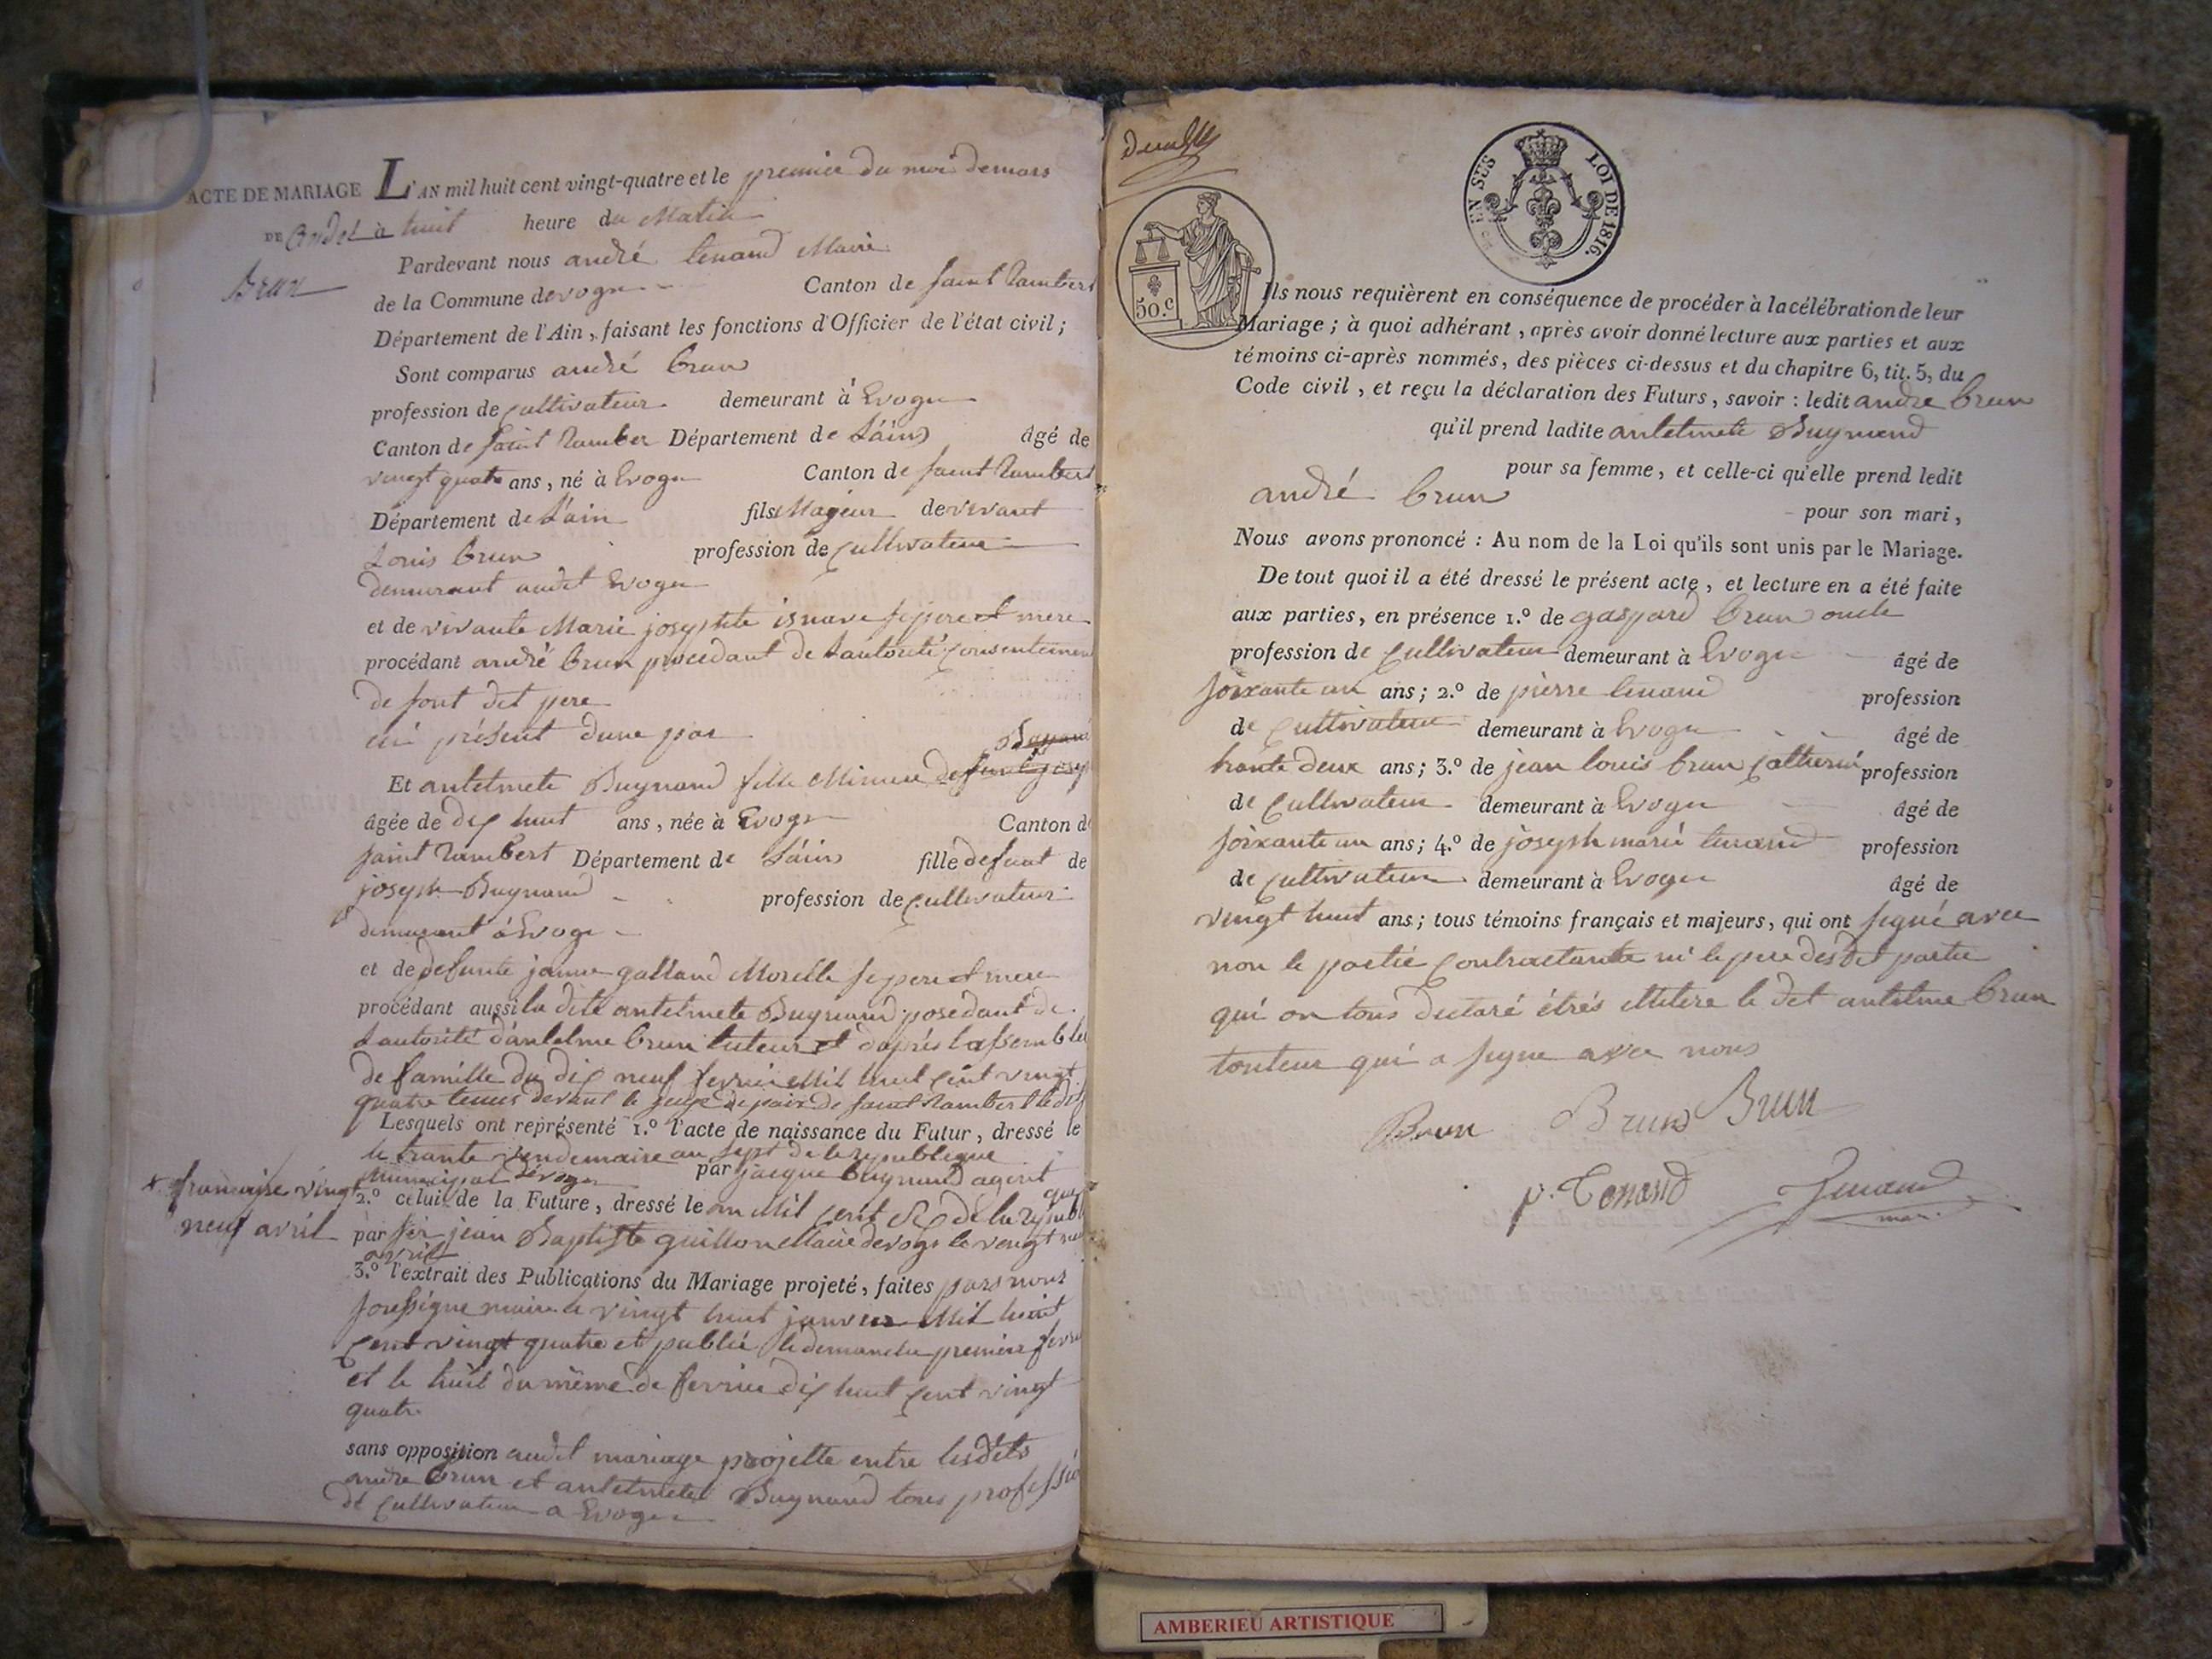 ACTE DE MARIAGE L'AN mil huit cent vingt-quatre et le premier du moi demars
DE andré à huit heure du Matin
Brun
Pardevant nous andré tenand Maire
de la Commune devogu Canton de saint Rambert
Département de l'Ain, faisant les fonctions d'Officier de l'état civil;
Sont comparus andré brun
profession de cultivateur demeurant à Evogu
Canton de saint Ramber Département de L'áin âgé de
vingt quatre ans, né à Evogu Canton de saint Rambert
Département de L'ain fils Majeur de vivant
Louis brun profession de cultivateur
demeurant audit Evogu
et de vivante Marie josephte se pere et mere
procédant andré brun procedant de Lautorité consentemen
de sont dit pere
ici présent dune par
Et antelmete Buynand fille Mineure de
âgée de dix huit ans, née à Evogu Canton de
saint Rambert Département de L'áin fille defunt de
joseph Buynand profession de cultivateur
demeurant à Evogu
et de defunte janne galland Morelle se pere et mere
procédant aussi la dite antelmete Buynand posedant de
Lautorité d'antelme brun tuteur et daprés lassemblé
de famille du dix neuf fevrier Mil huit cent vingt
quatre tenus devant le juge de paix de saint Rambert
Lesquels ont représenté 1.º l'acte de naissance du Futur, dressé le
le trante vendemaire an sept de la republique
municipal dévogu par jacque buynand agent
* francaise vingt
neuf avril
2.º celui de la Future, dressé le
par jean Baptiste guillon Maire devogu le vengt
avril
3.º l'extrait des Publications du Mariage projeté, faites pars nous
soussigne maire le vingt huit janvier Mil huit
cent vingt quatre et publié le demanche premier fevri
et le huit du même de fevrier dix huit cent vingt
quatre
sans opposition audit mariage projette entre lesdits
andre brun et antelmete Buynand tous professio
de cultivateur a Evogu
50.c
EN SUS LOI DE 1816.
Ils nous requièrent en conséquence de procéder à la célébration de leur
Mariage; à quoi adhérant, après avoir donné lecture aux parties et aux
témoins ci-après nommés, des pièces ci-dessus et du chapitre 6, tit. 5, du
Code civil, et reçu la déclaration des Futurs, savoir: ledit andre brun
qu'il prend ladite antelmete Buynand
pour sa femme, et celle-ci qu'elle prend ledit
andré brun
pour son mari,
Nous avons prononcé: Au nom de la Loi qu'ils sont unis par le Mariage.
De tout quoi il a été dressé le présent acte, et lecture en a été faite
aux parties, en présence 1.º de gaspard brun oncle
profession de cultivateur demeurant à Evogu âgé de
soixante un ans; 2.º de pierre tenand profession
de cultivateur demeurant à Evogu âgé de
trante deux ans; 3.º de jean louis brun profession
de cultivateur demeurant à Evogu âgé de
soixante un ans; 4.º de joseph marie tenand profession
de cultivateur demeurant à Evogu âgé de
vingt huit ans; tous témoins français et majeurs, qui ont signé avec
non le partie contractante ni le pere desdit partie
qui on tous declaré étrés illitere le dit antelme brun
touteur qui a signe avec nous
Brun Brun Brun
p. Tenand Tenand
mair.
AMBERIEU ARTISTIQUE